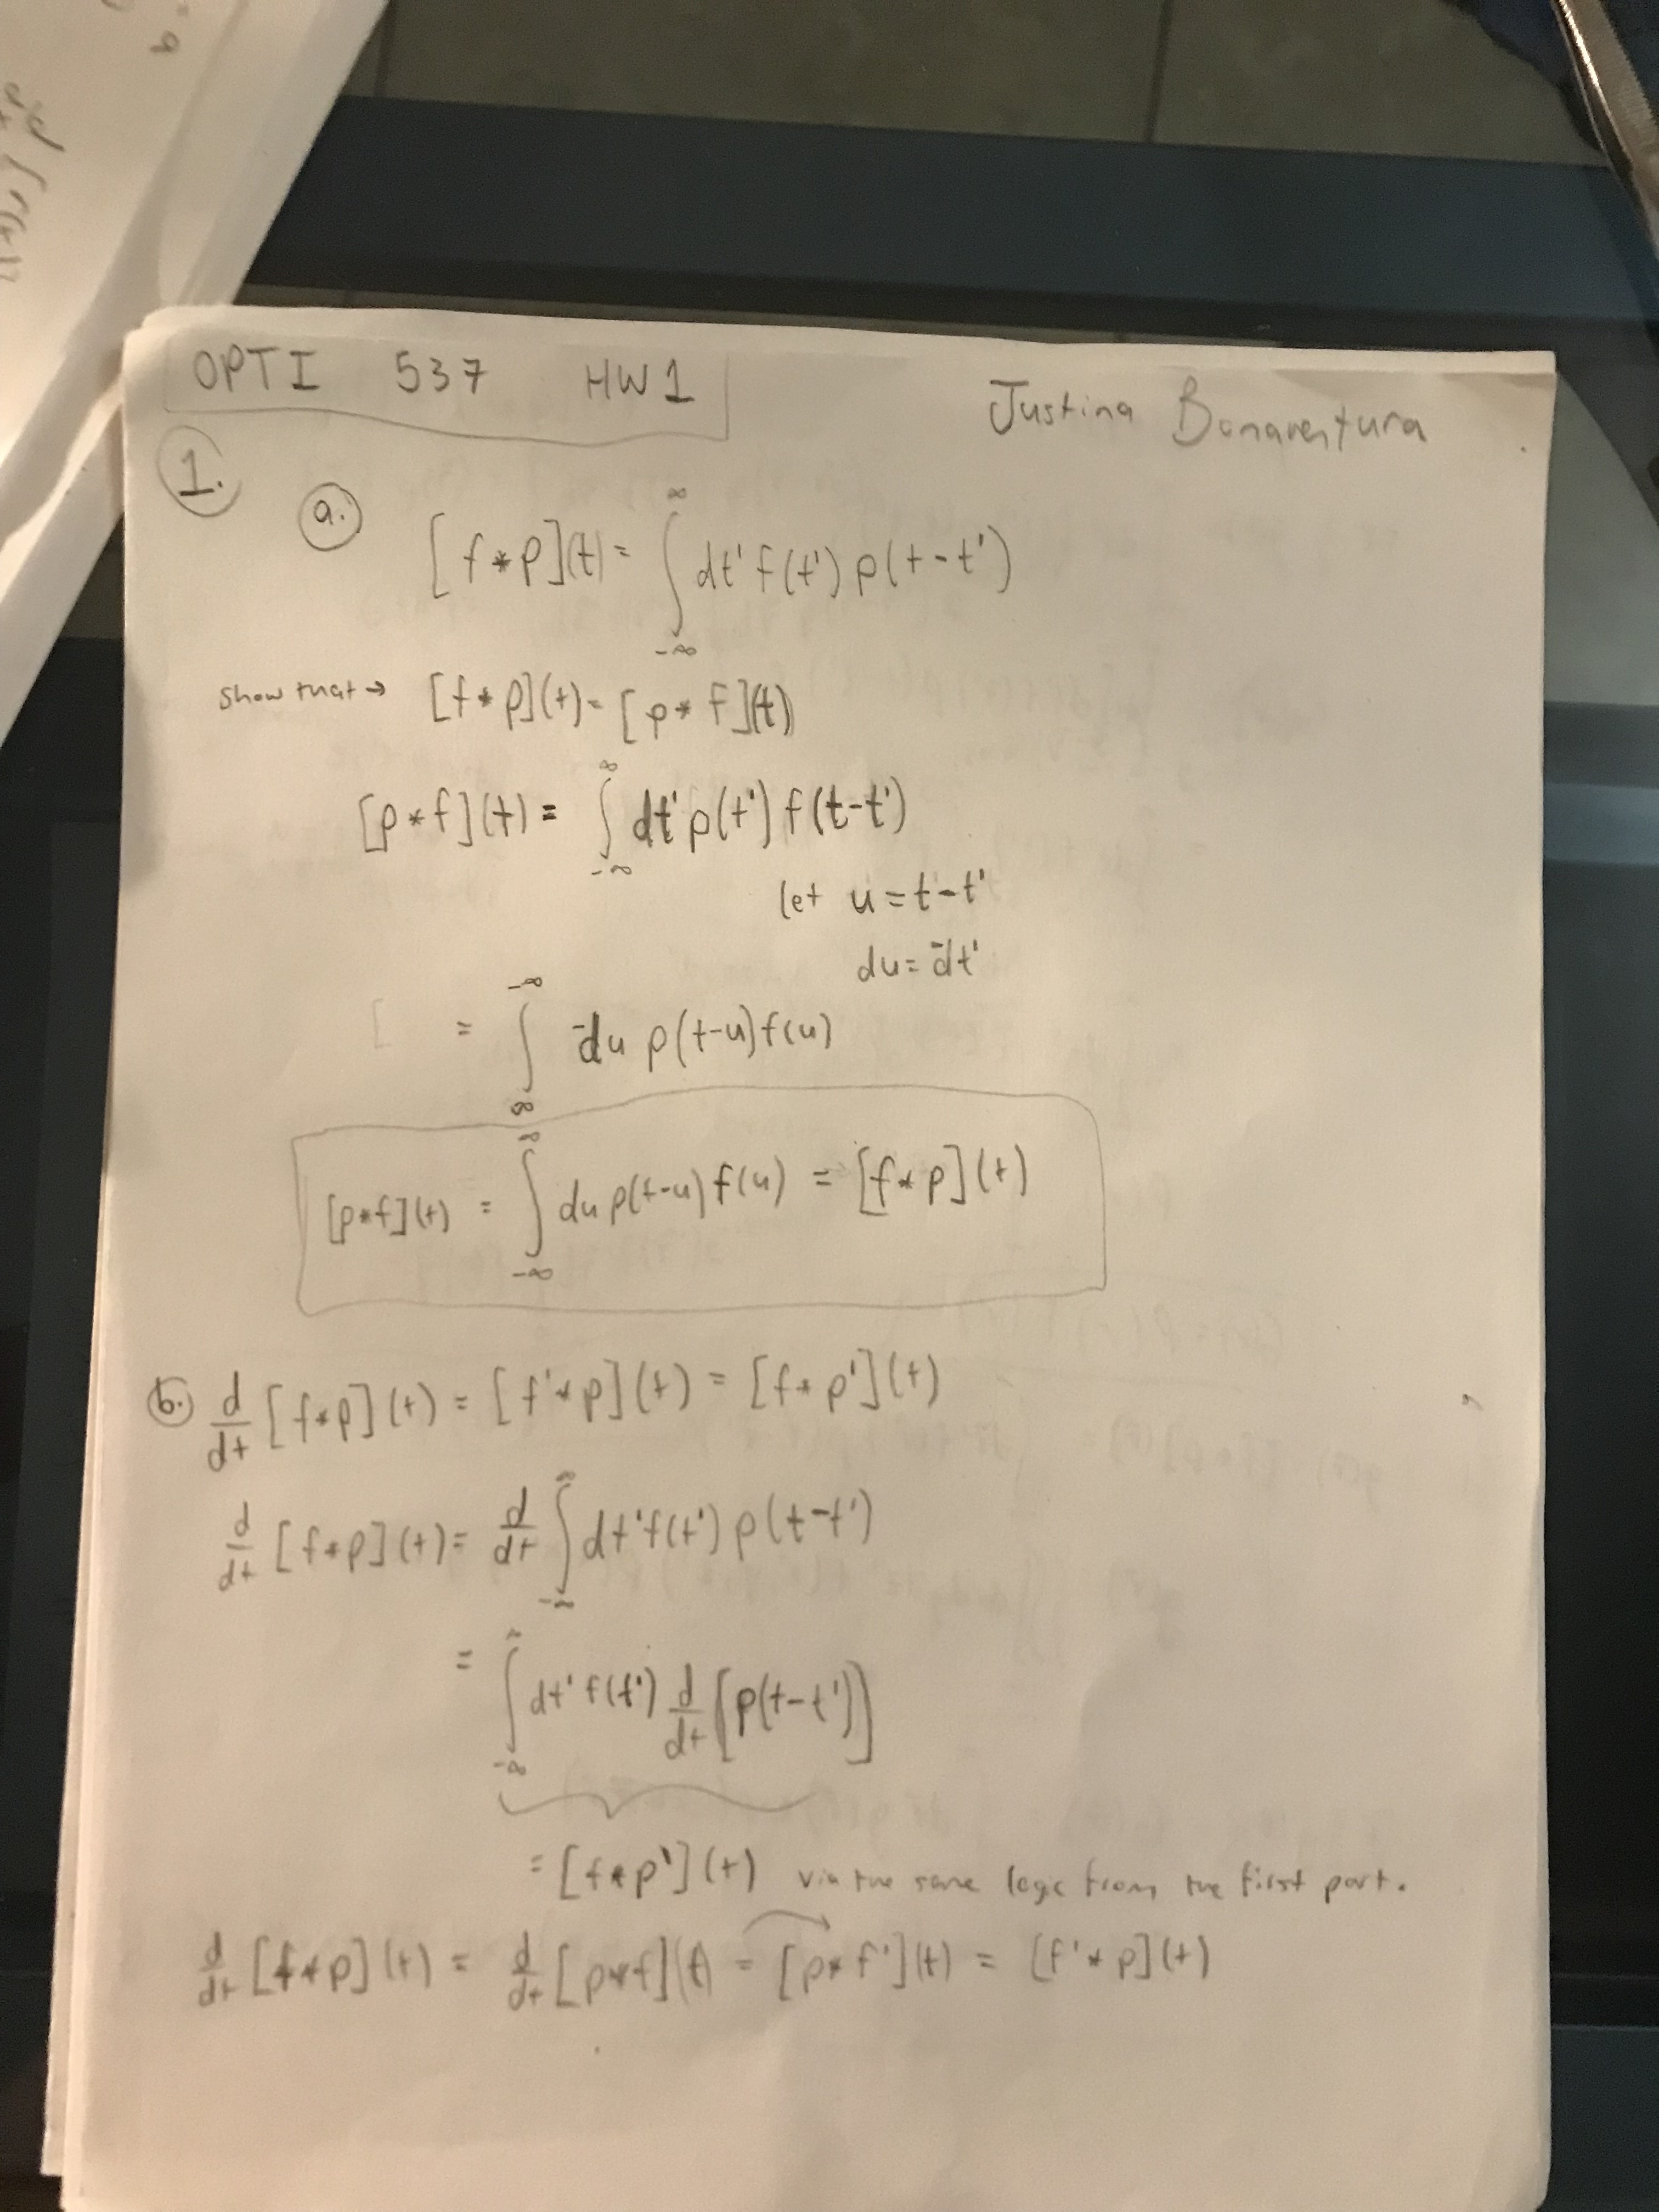 OPTI 537 HW1
Justina Bonaventura
1.
a. [f*p](t) = ∫_{-∞}^{∞} dt' f(t') p(t-t')
Show that → [f*p](t) = [p*f](t)
[p*f](t) = ∫_{-∞}^{∞} dt' p(t') f(t-t')
let u = t-t'
du = -dt'
= ∫_{∞}^{-∞} -du p(t-u) f(u)
[p*f](t) = ∫_{-∞}^{∞} du p(t-u) f(u) = [f*p](t)
b. d/dt [f*p](t) = [f'*p](t) = [f*p'](t)
d/dt [f*p](t) = d/dt ∫_{-∞}^{∞} dt' f(t') p(t-t')
= ∫_{-∞}^{∞} dt' f(t') d/dt [p(t-t')]
= [f*p'](t) via the same logic from the first part.
d/dt [f*p](t) = d/dt [p*f](t) = [p*f'](t) = [f'*p](t)